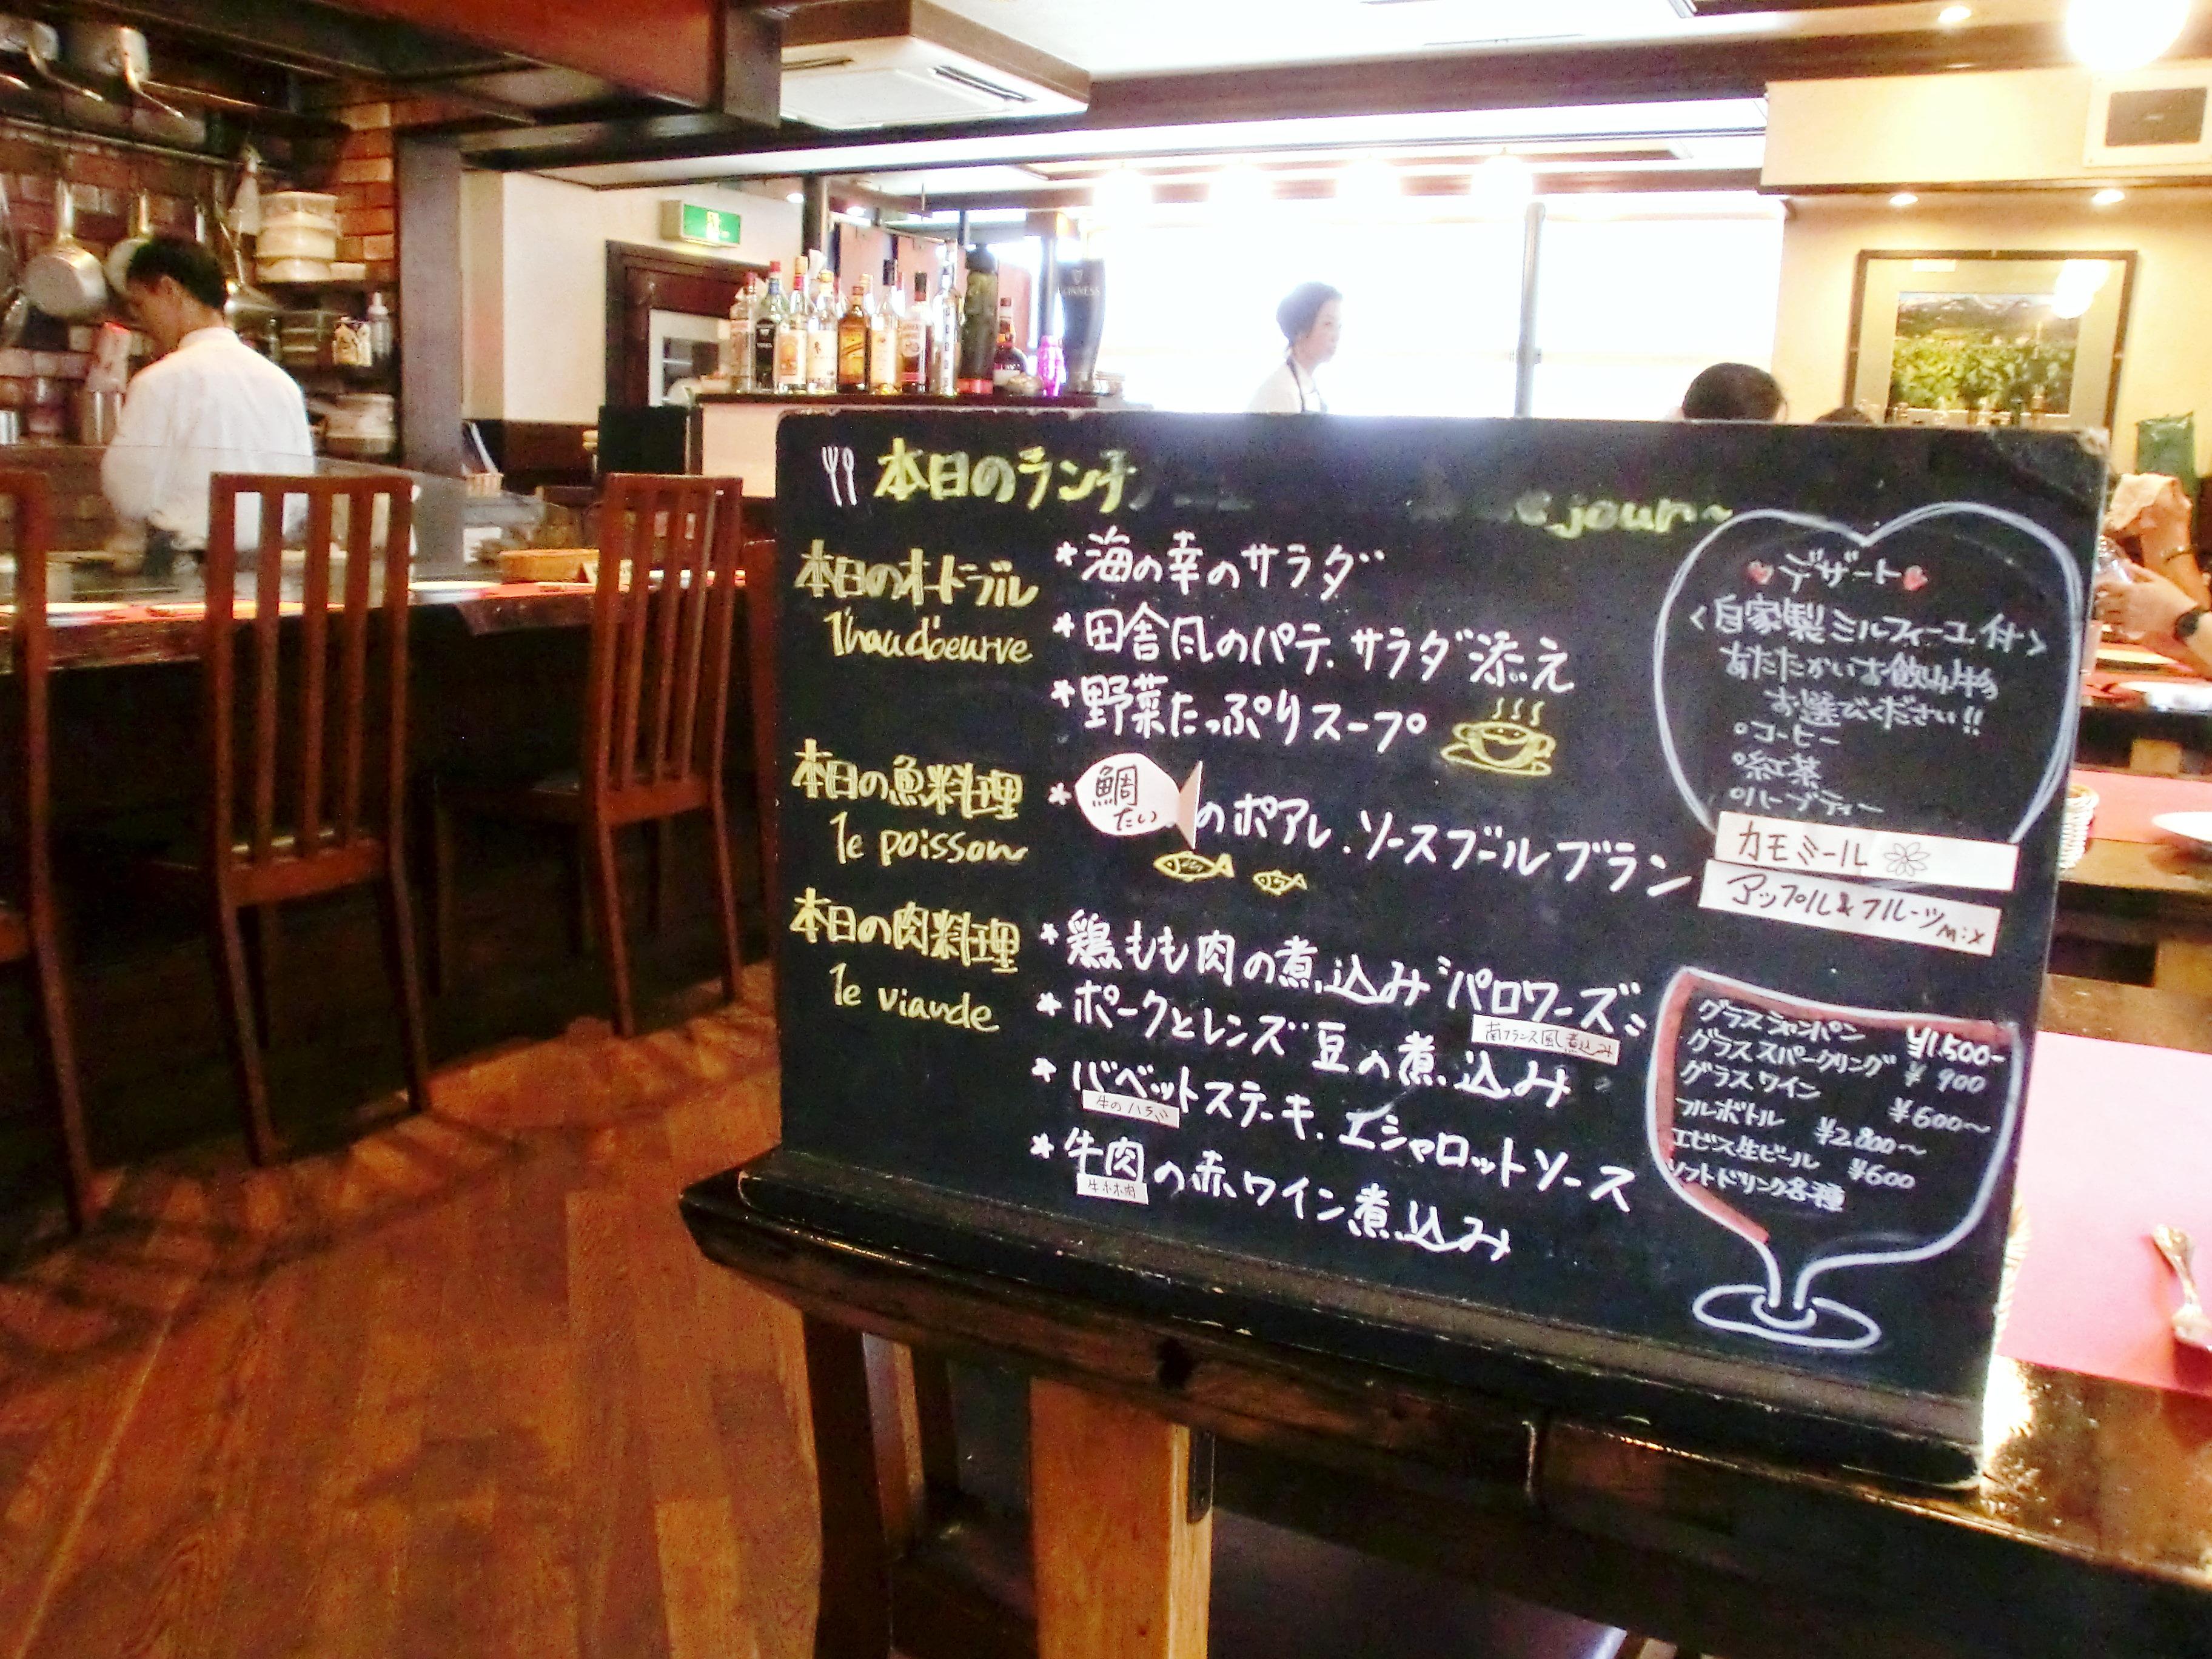 本日のランチ
jour~
本日のオードブル
l'haud'oeurve
*海の幸のサラダ
*田舎風のパテ.サラダ添え
*野菜たっぷりスープ
本日の魚料理
le poisson
*鯛のポアレ.ソースブールブラン
たい
本日の肉料理
le viande
*鶏もも肉の煮込み〝バロワーズ〟
南フランス風煮込み
*ポークとレンズ豆の煮込み
*バベットステーキ.エシャロットソース
牛のハラミ
*牛肉の赤ワイン煮込み
牛ホホ肉
デザート
<自家製ミルフィーユ付>
あたたかいお飲み物
お選びください!!
○コーヒー
○紅茶
○ハーブティー
カモミール
アップル&フルーツMix
グラスシャンパン ¥1,500-
グラススパークリング ¥900
グラスワイン ¥600~
フルボトル ¥2,800~
エビス生ビール ¥600
ソフトドリンク各種
GUINNESS